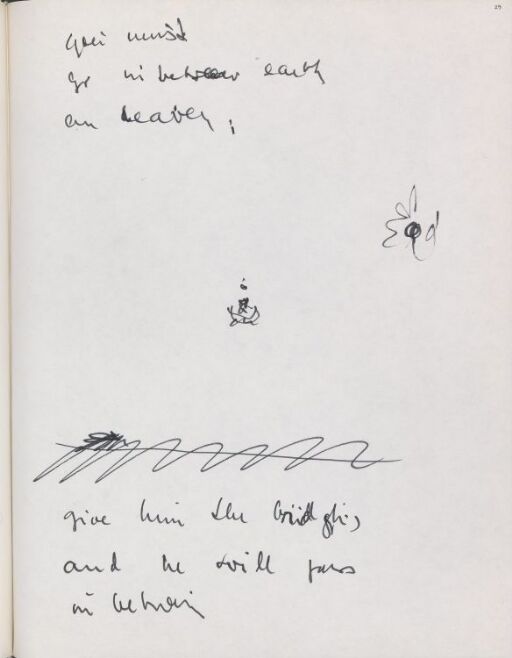 29
you must
go in between earth
an heaven,
give him the
and he will pass
in between